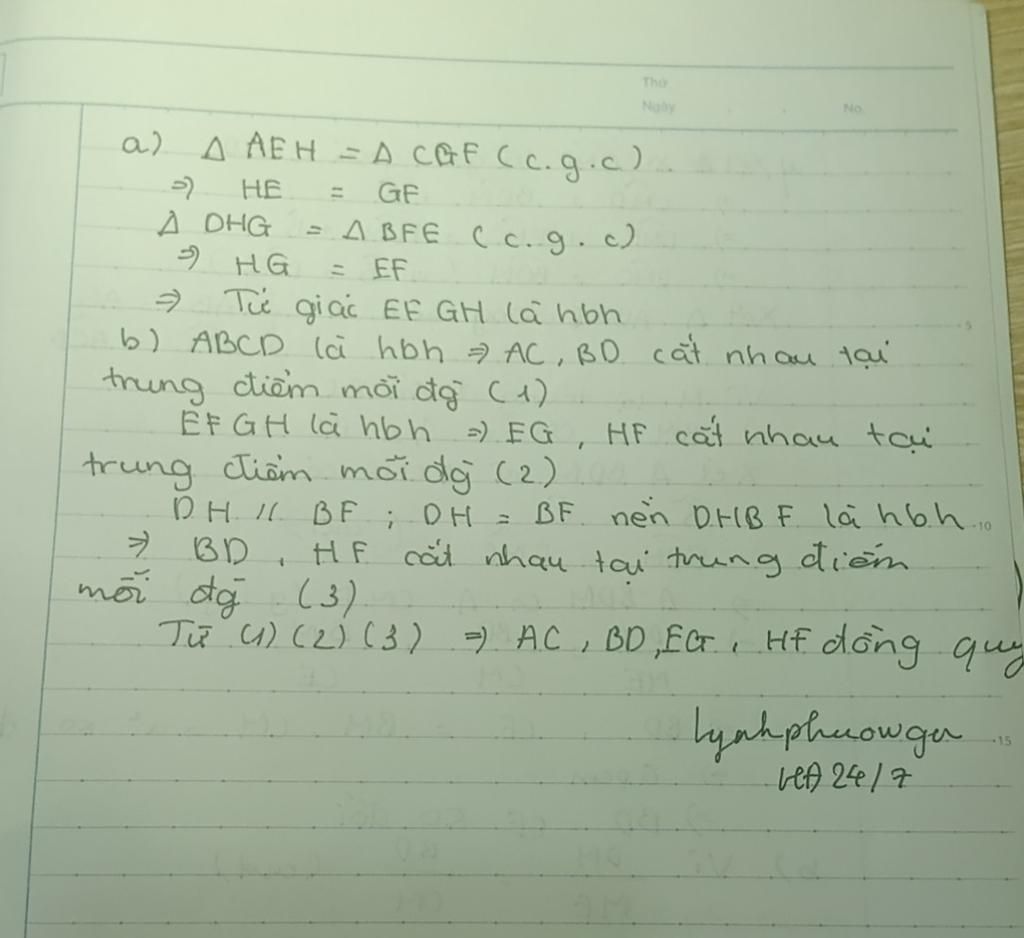 Thứ
Ngày No.
a) Δ AEH = Δ CGF (c.g.c)
⇒ HE = GF
Δ DHG = Δ BFE (c.g.c)
⇒ HG = EF
⇒ Tứ giác EFGH là hbh
b) ABCD là hbh ⇒ AC, BD cắt nhau tại
trung điểm mỗi đg (1)
EFGH là hbh ⇒ EG, HF cắt nhau tại
trung điểm mỗi đg (2)
DH // BF ; DH = BF nên DHBF là hbh
10
⇒ BD, HF cắt nhau tại trung điểm
mỗi đg (3)
Từ (1) (2) (3) ⇒ AC, BD, EG, HF đồng quy
lynhphuowgw
15
24/7